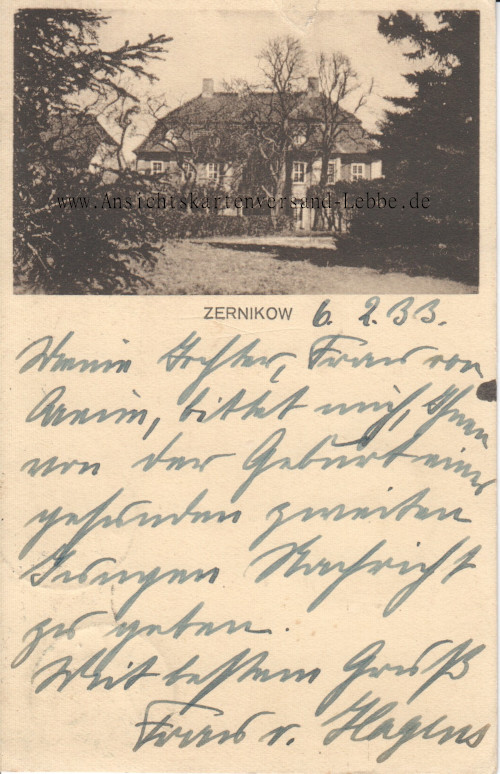 www.Ansichtskartenversand-Lebbe.de
ZERNIKOW 6. 2. 33.
Meine Tochter, Frau von
Arnim, bittet mich, Ihnen
von der Geburt eines
gesunden zweiten
Jungen Nachricht
zu geben.
Mit bestem Gruß
Frau v. Hagens